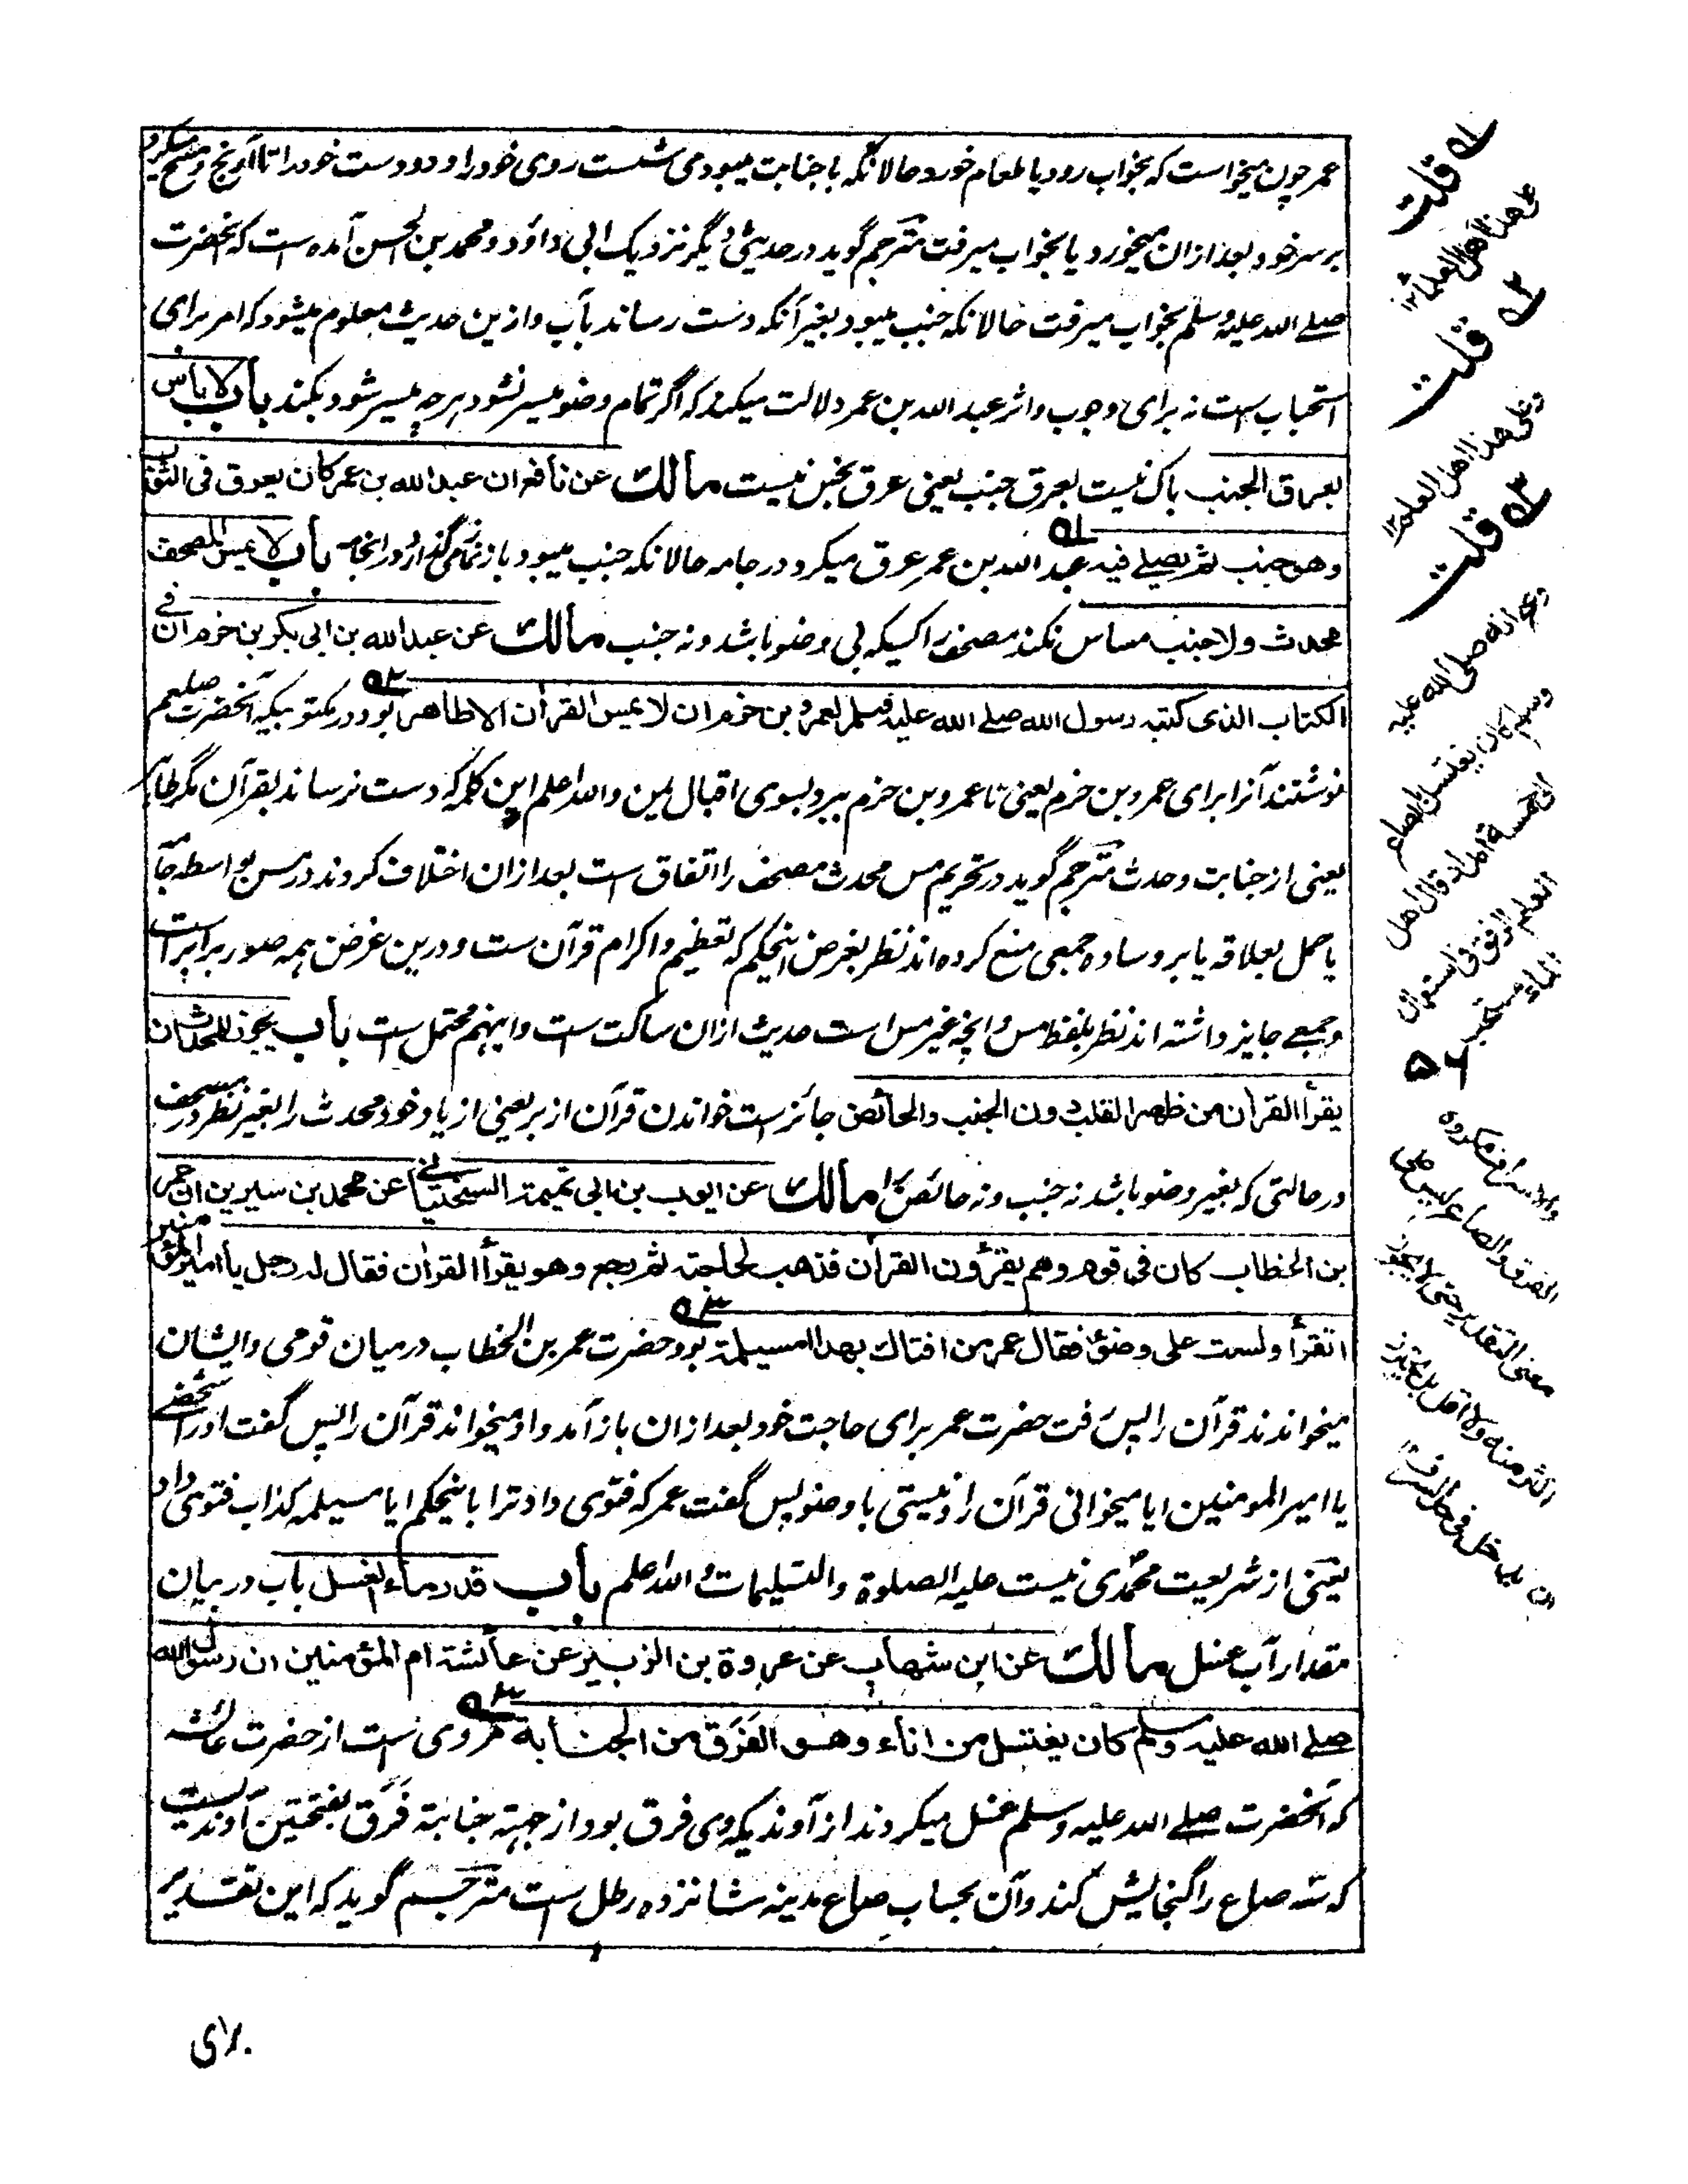 عمر چون میخواست که بخواب رود یا طعام خورد حالانکه با جنابت میبود می شست روی خود را و دو دست خود را تا آرنج و مسح میکرد
بر سر خود و بعد ازان میخورد یا بخواب میرفت مترجم گوید در حدیثی دیگر نزدیک ابی داؤد و محمد بن الحسن آمده است که آنحضرت
صلے الله علیه وسلم بخواب میرفت حالانکه جنب میبود بغیر آنکه دست رساند بآب و ازین حدیث معلوم میشود که امر برای
استحباب ست نه برای وجوب و اثر عبد الله بن عمر دلالت میکند که اگر تمام وضو میسر نشود هرچه میسر شود بکند باب لا باس
بعراق الجنب باک نیست بعرق جنب یعنی عرق نجس نیست مالك عن نافع ان عبد الله بن عمر کان یعرق فی الثوب
وهو جنب ثم یصلے فیه عبد الله بن عمر عرق میکرد در جامه حالانکه جنب میبود باز نماز می گذارد در انجامه باب لا یمس المصحف
محدث ولا جنب مساس نکند مصحف را کسیکه بی وضو باشد و نه جنب مالك عن عبد الله بن ابی بکر بن حزم ان فی
الکتاب الذی کتبه رسول الله صلے الله علیه وسلم لعمرو بن حزم ان لا یمس القرآن الا طاهر بود در مکتوبیکه آنحضرت صلعم
نوشتند آنرا برای عمرو بن حزم یعنی تا عمرو بن حزم ببرد بسوی اقبال یمن والله اعلم این کلمه که دست نرساند بقرآن مگر طاهر
یعنی از جنابت و حدث مترجم گوید در تحریم مس محدث مصحف را اتفاق ست بعد ازان اختلاف کردند در مس بواسطه جامه
یا حمل بعلاقه یا بر وساده جمعی منع کرده اند نظر بغرض اینحکم که تعظیم و اکرام قرآن ست و درین غرض همه صور برابر است
و جمعے جایز داشته اند نظر بلفظ مس و انچه غیر مس است حدیث ازان ساکت ست و اینهم محتمل ست باب یجوز للمحدث ان
یقرأ القرآن من ظهر القلب دون الجنب والحائض جائز ست خواندن قرآن از بر یعنی از یاد خود محدث را بغیر نظر در مصحف
در حالتی که بغیر وضو باشد نه جنب و نه حائض را مالك عن ایوب بن ابی تمیمة السختیانی عن محمد بن سیرین ان عمر
بن الخطاب کان فی قوم وهم یقرؤن القرآن فذهب لحاجته ثم رجع وهو یقرأ القرآن فقال له رجل یا امیر المؤمنین
اتقرأ ولست علی وضوء فقال عمر من افتاك بهذا امسیلمة بود حضرت عمر بن الخطاب درمیان قومی و ایشان
میخواندند قرآن را پس رفت حضرت عمر برای حاجت خود بعد ازان باز آمد و او میخواند قرآن را پس گفت او را شخصے
یا امیر المومنین ایا میخوانی قرآن را و نیستی با وضو پس گفت عمر که فتوی داد ترا باینحکم ایا مسیلمه کذاب فتوی داد
یعنی از شریعت محمدی نیست علیه الصلوة والتسلیمات والله اعلم باب قدر ماء الغسل باب در بیان
مقدار آب غسل مالك عن ابن شهاب عن عروة بن الزبیر عن عائشة ام المؤمنین ان رسول الله
صلے الله علیه وسلم کان یغتسل من اناء وهو الفَرَق من الجنابة مروی ست از حضرت عائشه
که آنحضرت صلے الله علیه وسلم غسل میکردند از آوندیکه وی فرق بود از جهة جنابته فَرَق بفتحتین آوندیست
که سه صاع را گنجایش کند و آن بحساب صاع مدینه شانزده رطل ست مترجم گوید که این تقدیر
برای
ا قلت
هذا اهل العلم ۱۲
۲ قلت
وعلی هذا اهل العلم ۱۲
۳ قلت
وعن انه صلی الله علیه
وسلم کان یغتسل بالصاع
الی خمسة امداد قال اهل
العلم الرفق فی استعمال
الماء مستحب
۵۶
والاسراف مکروه
الفرق والصاع لیس علی
معنی التقدیر حتی لا یجوز
اکثر منه ولا اقل بل یحترز
ان یدخل فی حد السرف ۱۲